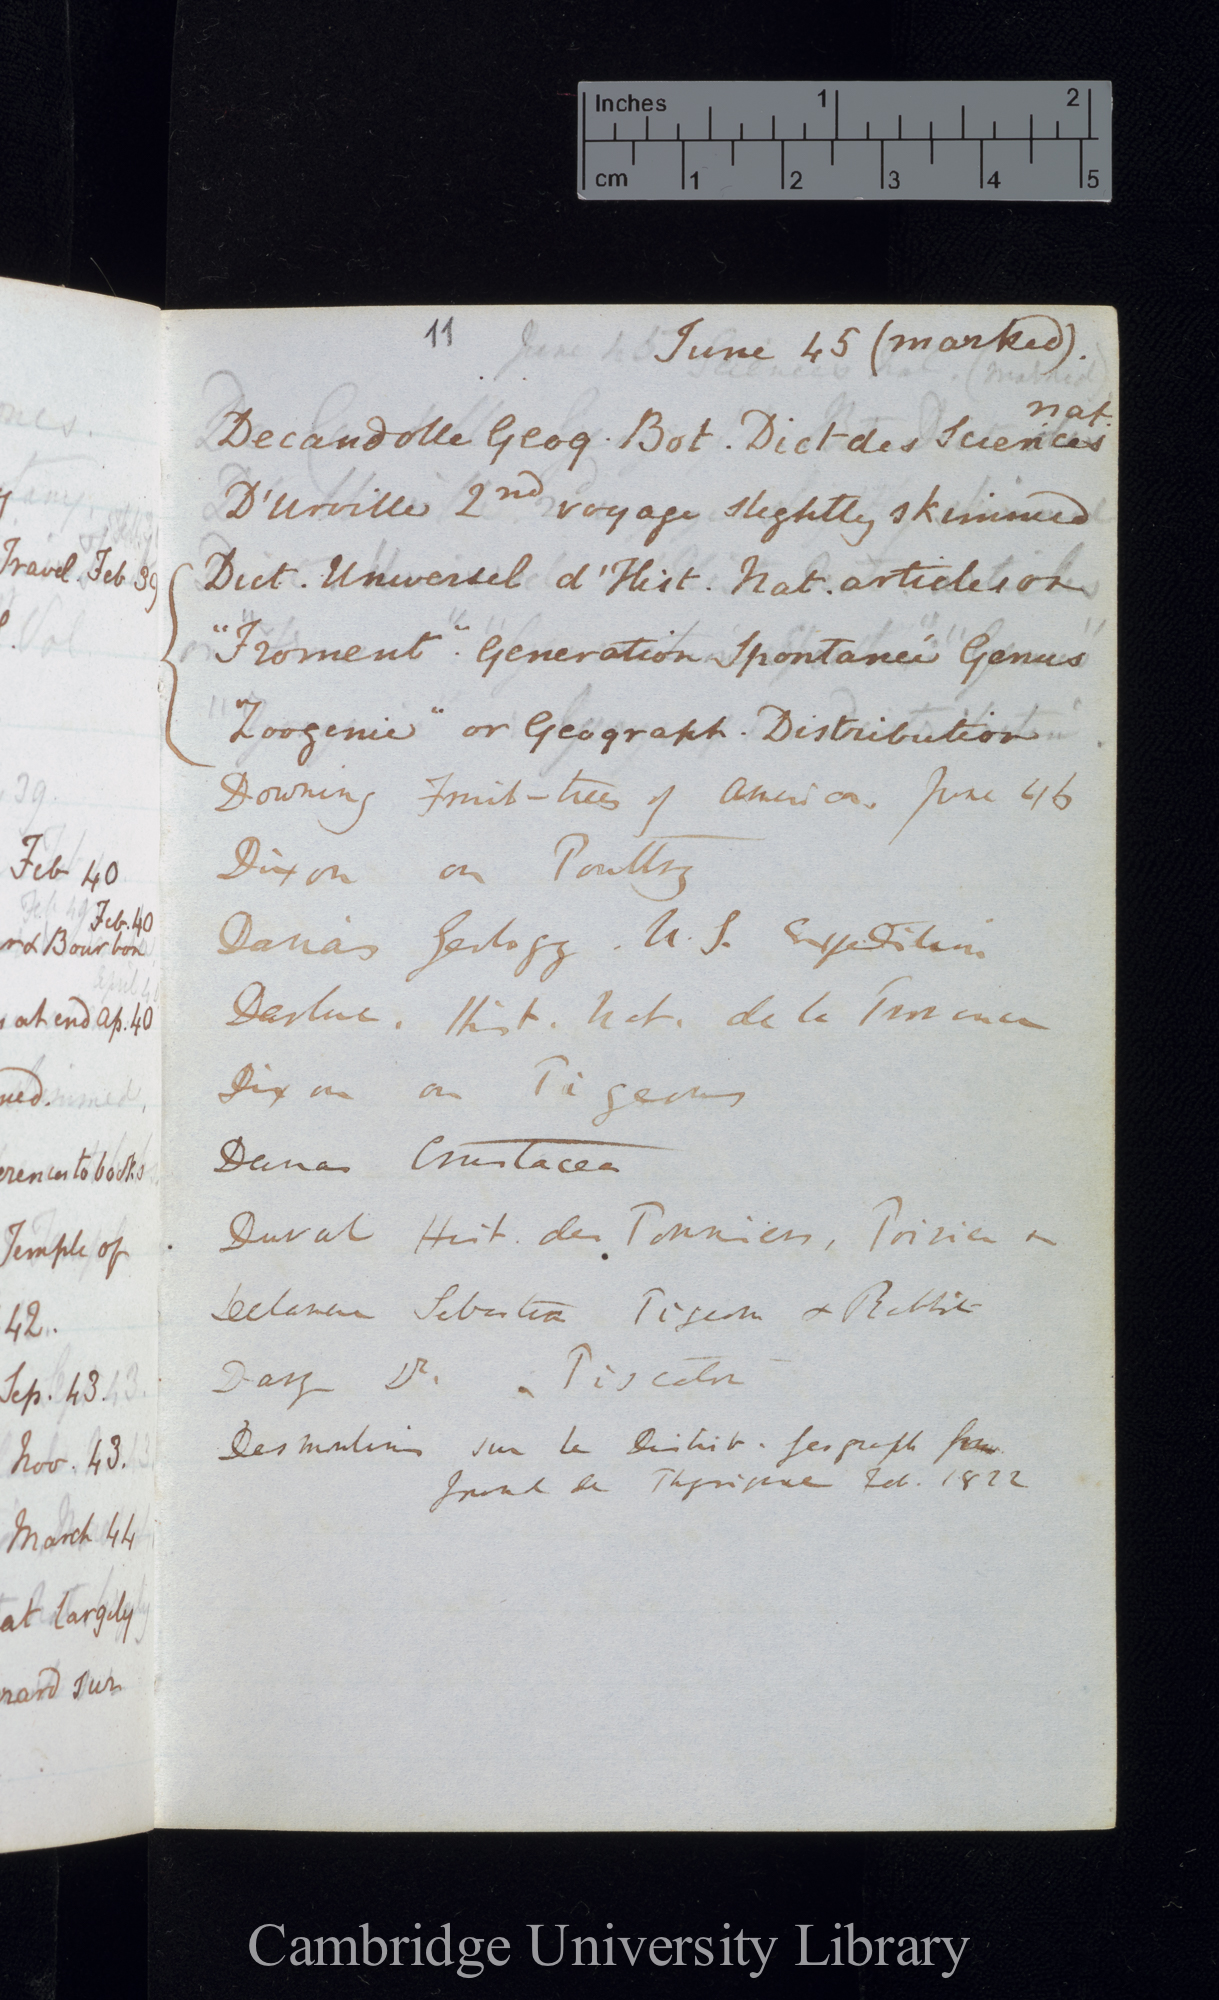 Inches 1 2
cm 1 2 3 4 5
11 June 45 (marked).
nat.
Decandolle Geog. Bot. Dict des Sciences
D'Urville 2nd voyage slightly skimmed
Dict. Universel d'Hist. Nat. articles on
"Froment". Generation Spontaneé Genus
"Zoogenie" or Geograph. Distribution
Downing Fruit-trees of America. June 46
Dixon on Poultry
Dana's Geology. U.S. Expedition
Darluc. Hist. Nat. de la Provence
Dixon on Pigeons
Danas Crustacea
Duval Hist. des Pommiers, Poirier
Delamer Pigeon & Rabbit
Davy Dr. Piscator
Desmoulins sur la Distrib. Geograph
Journal de Physique Feb. 1822
ones.
Travel. Feb 39
Feb 40
Feb. 40
r & Bourbon
s at end Ap. 40
ned.
erences to books
Temple of
42.
Sep. 43.
Nov. 43.
March 44
at largely
rard sur
Cambridge University Library